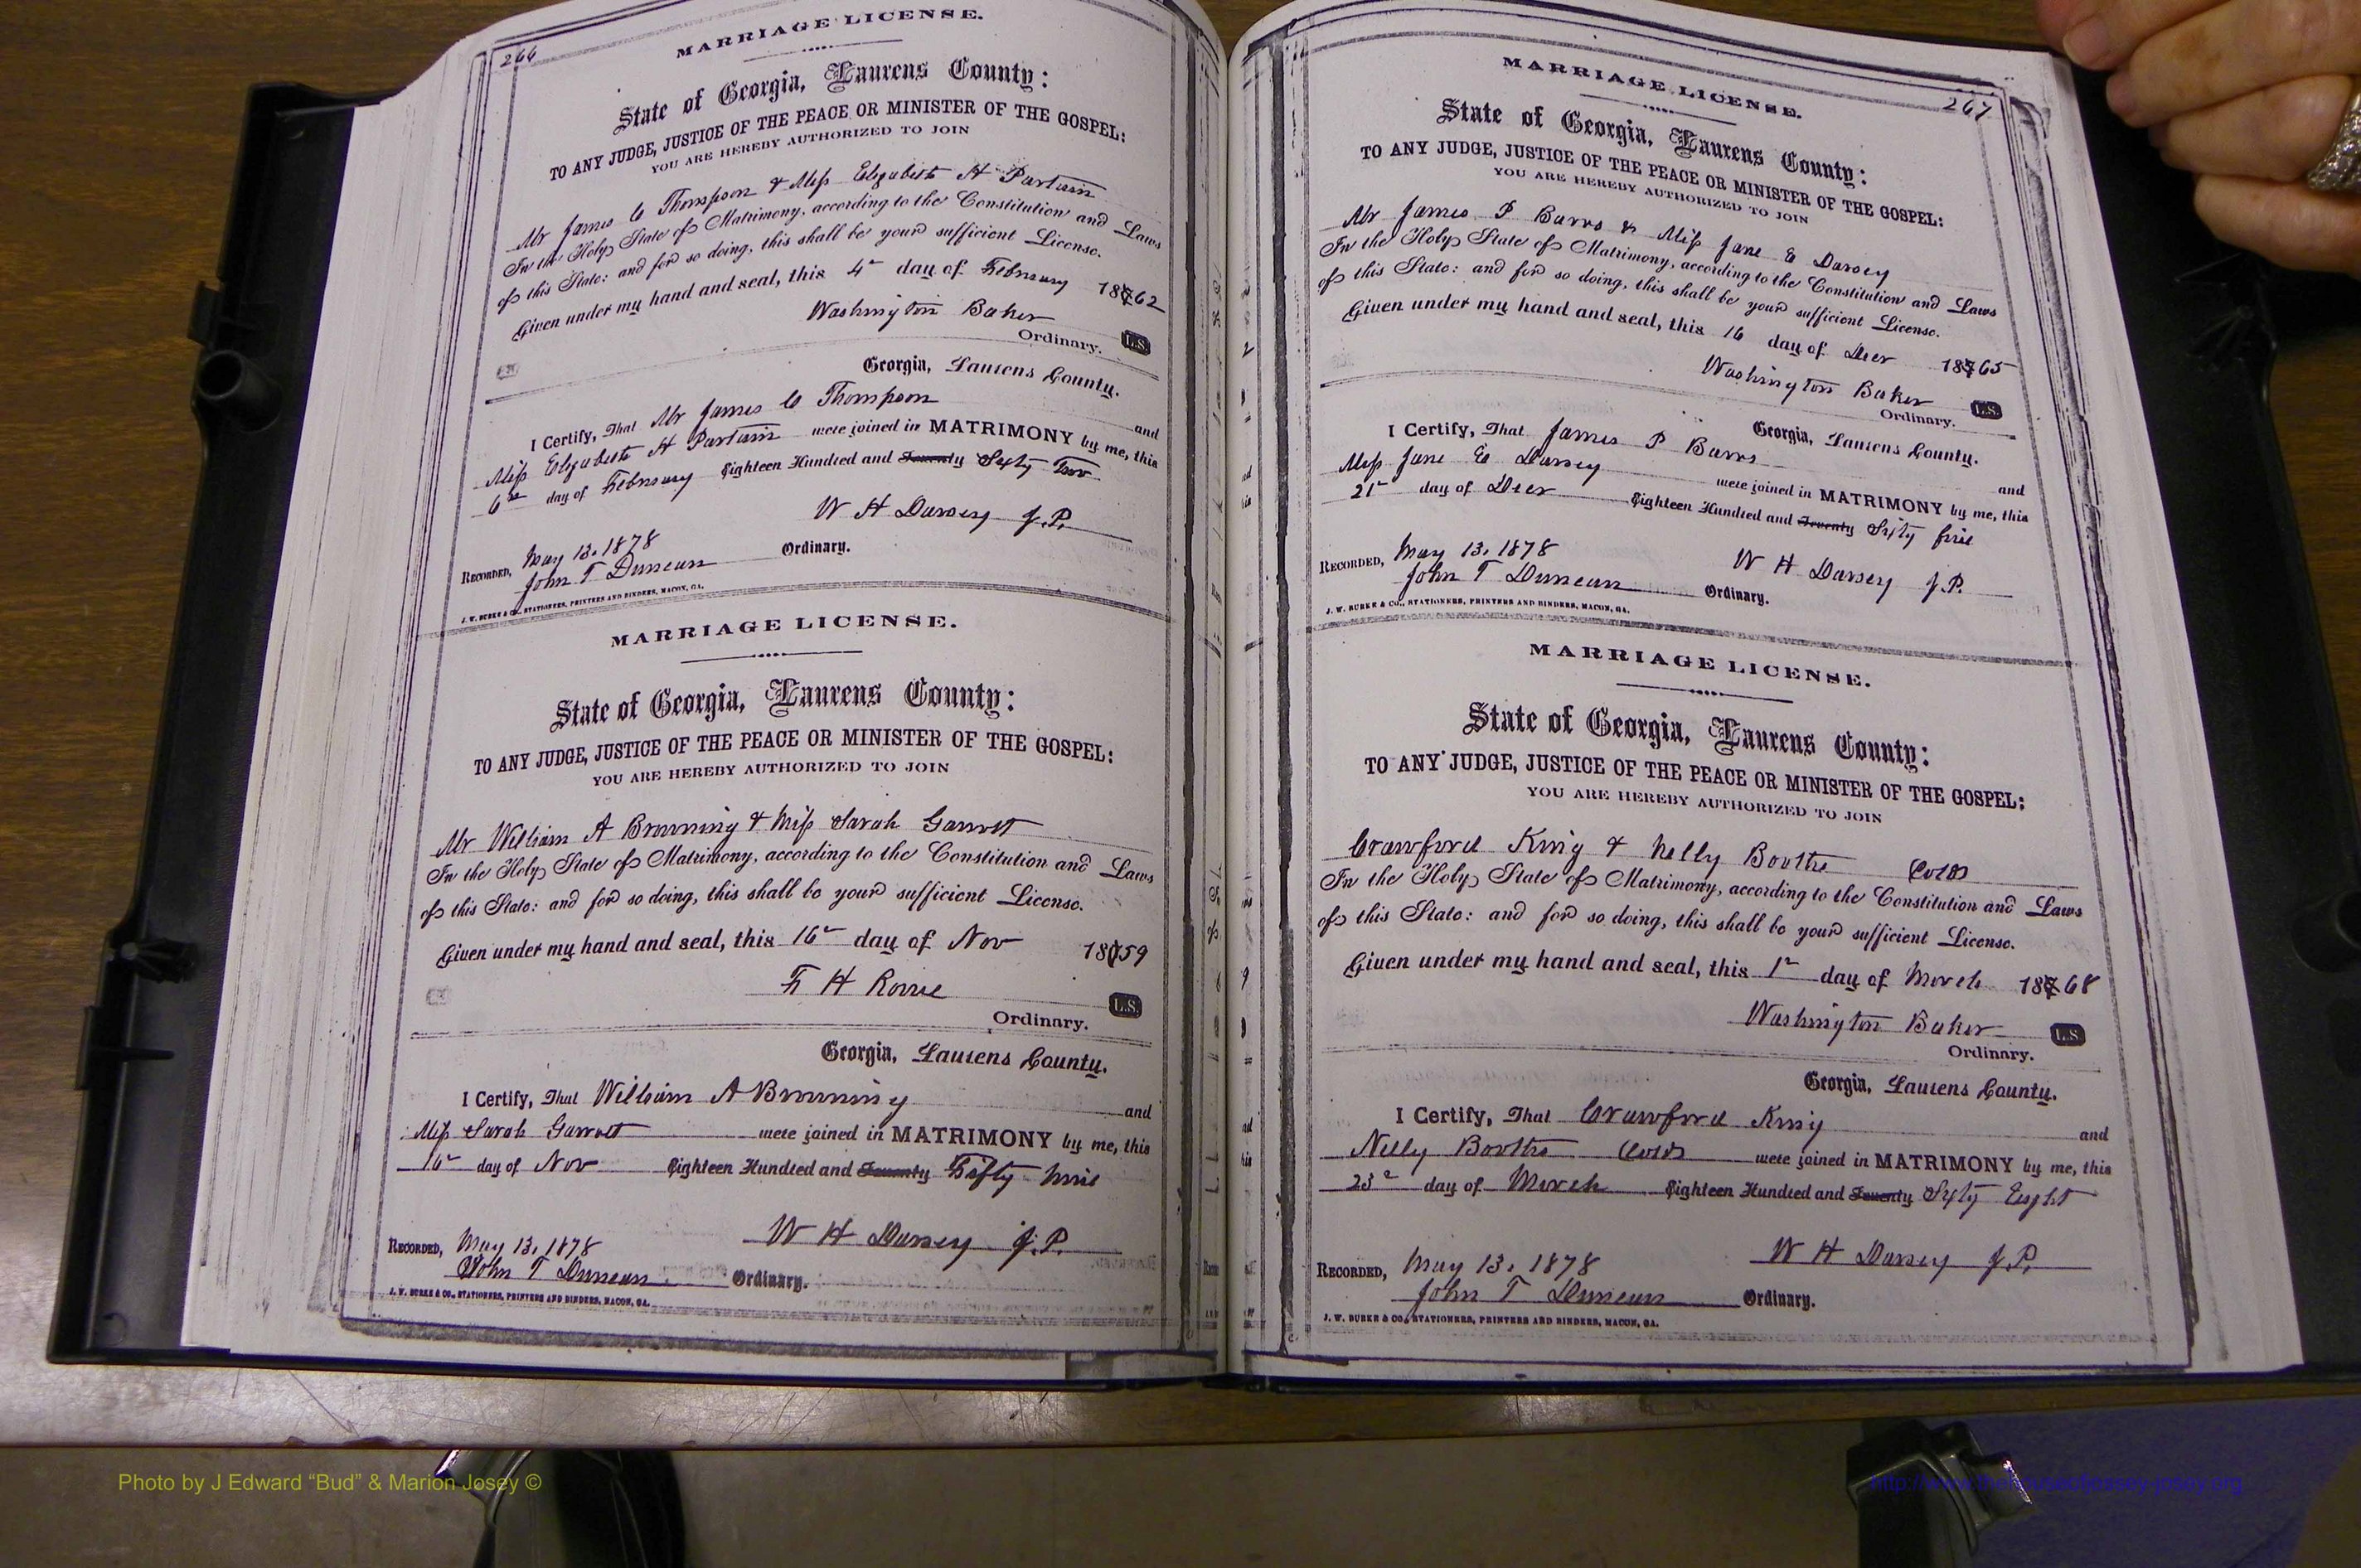 266
MARRIAGE LICENSE.
State of Georgia, Laurens County:
TO ANY JUDGE, JUSTICE OF THE PEACE OR MINISTER OF THE GOSPEL:
YOU ARE HEREBY AUTHORIZED TO JOIN
Mr James C Thompson & Miss Elizabeth H Partain
In the Holy State of Matrimony, according to the Constitution and Laws
of this State: and for so doing, this shall be your sufficient License.
Given under my hand and seal, this 4th day of February 1862
Washington Baker
Ordinary. L.S.
Georgia, Laurens County.
I Certify, That Mr James C Thompson and
Miss Elizabeth H Partain were joined in MATRIMONY by me, this
6th day of February Eighteen Hundred and Seventy Sixty Two
W H Darsey J.P.
RECORDED, May 13, 1878
John T Duncan Ordinary.
J. W. BURKE & CO., STATIONERS, PRINTERS AND BINDERS, MACON, GA.
MARRIAGE LICENSE.
State of Georgia, Laurens County:
TO ANY JUDGE, JUSTICE OF THE PEACE OR MINISTER OF THE GOSPEL:
YOU ARE HEREBY AUTHORIZED TO JOIN
Mr William A Browning & Miss Sarah Garrott
In the Holy State of Matrimony, according to the Constitution and Laws
of this State: and for so doing, this shall be your sufficient License.
Given under my hand and seal, this 16th day of Nov 1859
F H Rowe
L.S.
Ordinary.
Georgia, Laurens County.
I Certify, That William A Browning and
Miss Sarah Garrott were joined in MATRIMONY by me, this
16th day of Nov Eighteen Hundred and Seventy Fifty nine
W H Darsey J.P.
RECORDED, May 13, 1878
John T Duncan Ordinary.
J. W. BURKE & CO., STATIONERS, PRINTERS AND BINDERS, MACON, GA.
267
MARRIAGE LICENSE.
State of Georgia, Laurens County:
TO ANY JUDGE, JUSTICE OF THE PEACE OR MINISTER OF THE GOSPEL:
YOU ARE HEREBY AUTHORIZED TO JOIN
Mr James P Burrs & Miss Jane E Darsey
In the Holy State of Matrimony, according to the Constitution and Laws
of this State: and for so doing, this shall be your sufficient License.
Given under my hand and seal, this 16 day of Decr 1865
Washington Baker
Ordinary. L.S.
Georgia, Laurens County.
I Certify, That James P Burrs and
Miss Jane E Darsey were joined in MATRIMONY by me, this
21st day of Decr Eighteen Hundred and Seventy Sixty five
W H Darsey J.P.
RECORDED, May 13, 1878
John T Duncan Ordinary.
J. W. BURKE & CO., STATIONERS, PRINTERS AND BINDERS, MACON, GA.
MARRIAGE LICENSE.
State of Georgia, Laurens County:
TO ANY JUDGE, JUSTICE OF THE PEACE OR MINISTER OF THE GOSPEL:
YOU ARE HEREBY AUTHORIZED TO JOIN
Crawford King & Nelly Boothe Cold
In the Holy State of Matrimony, according to the Constitution and Laws
of this State: and for so doing, this shall be your sufficient License.
Given under my hand and seal, this 1st day of March 1868
Washington Baker L.S.
Ordinary.
Georgia, Laurens County.
I Certify, That Crawford King and
Nelly Boothe Cold were joined in MATRIMONY by me, this
23d day of March Eighteen Hundred and Seventy Sixty Eight
W H Darsey J.P.
RECORDED, May 13, 1878
John T Duncan Ordinary.
J. W. BURKE & CO., STATIONERS, PRINTERS AND BINDERS, MACON, GA.
Photo by J Edward “Bud” & Marion Josey ©
http://www.thehouseofjossey-josey.org